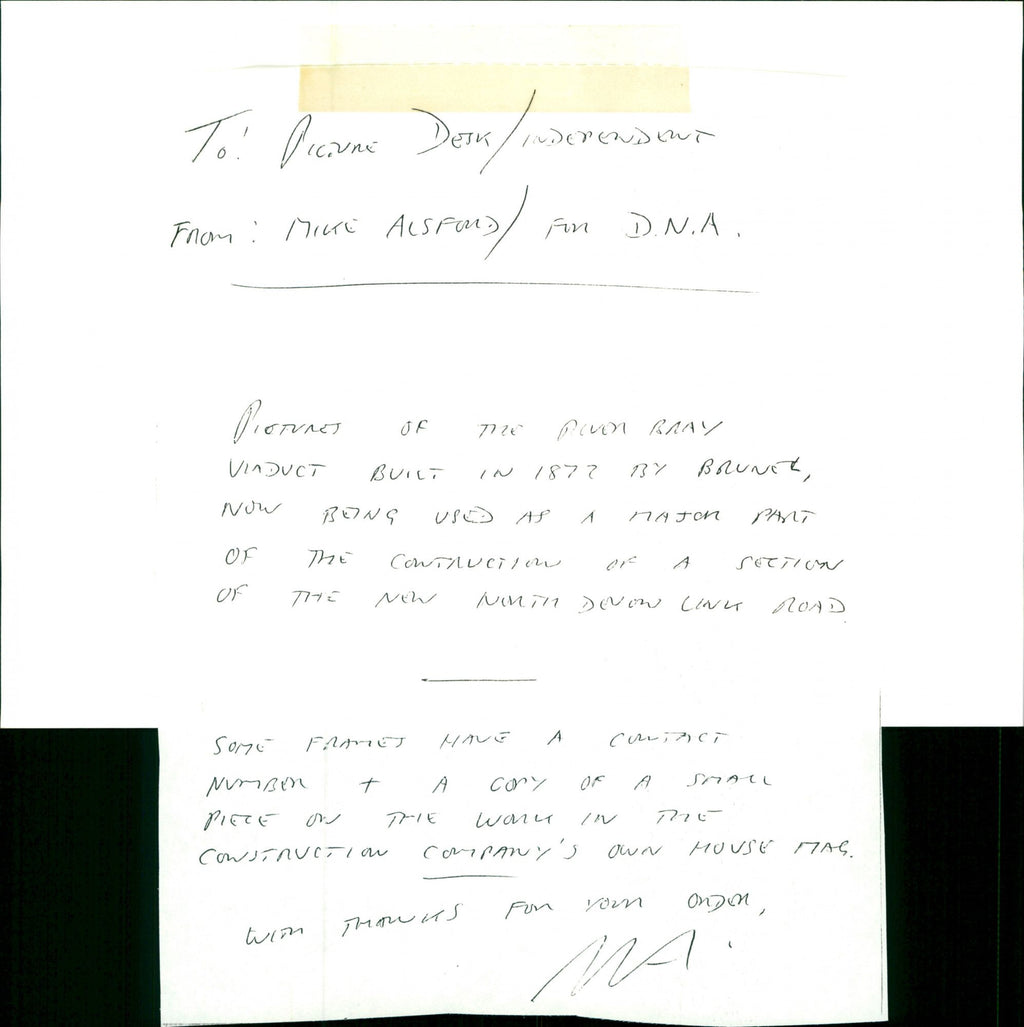 To: PICTURE DESK/INDEPENDENT
FROM: MIKE ALSFORD/ FOR D.N.A.
PICTURES OF THE RIVER BRAY
VIADUCT BUILT IN 1872 BY BRUNEL,
NOW BEING USED AS A MAJOR PART
OF THE CONTRUCTION OF A SECTION
OF THE NEW NORTH DEVON LINK ROAD.
SOME FRAMES HAVE A CONTACT
NUMBER + A COPY OF A SMALL
PIECE ON THE WORK IN THE
CONSTRUCTION COMPANY'S OWN HOUSE MAG.
WITH THANKS FOR YOUR ORDER,
MA.